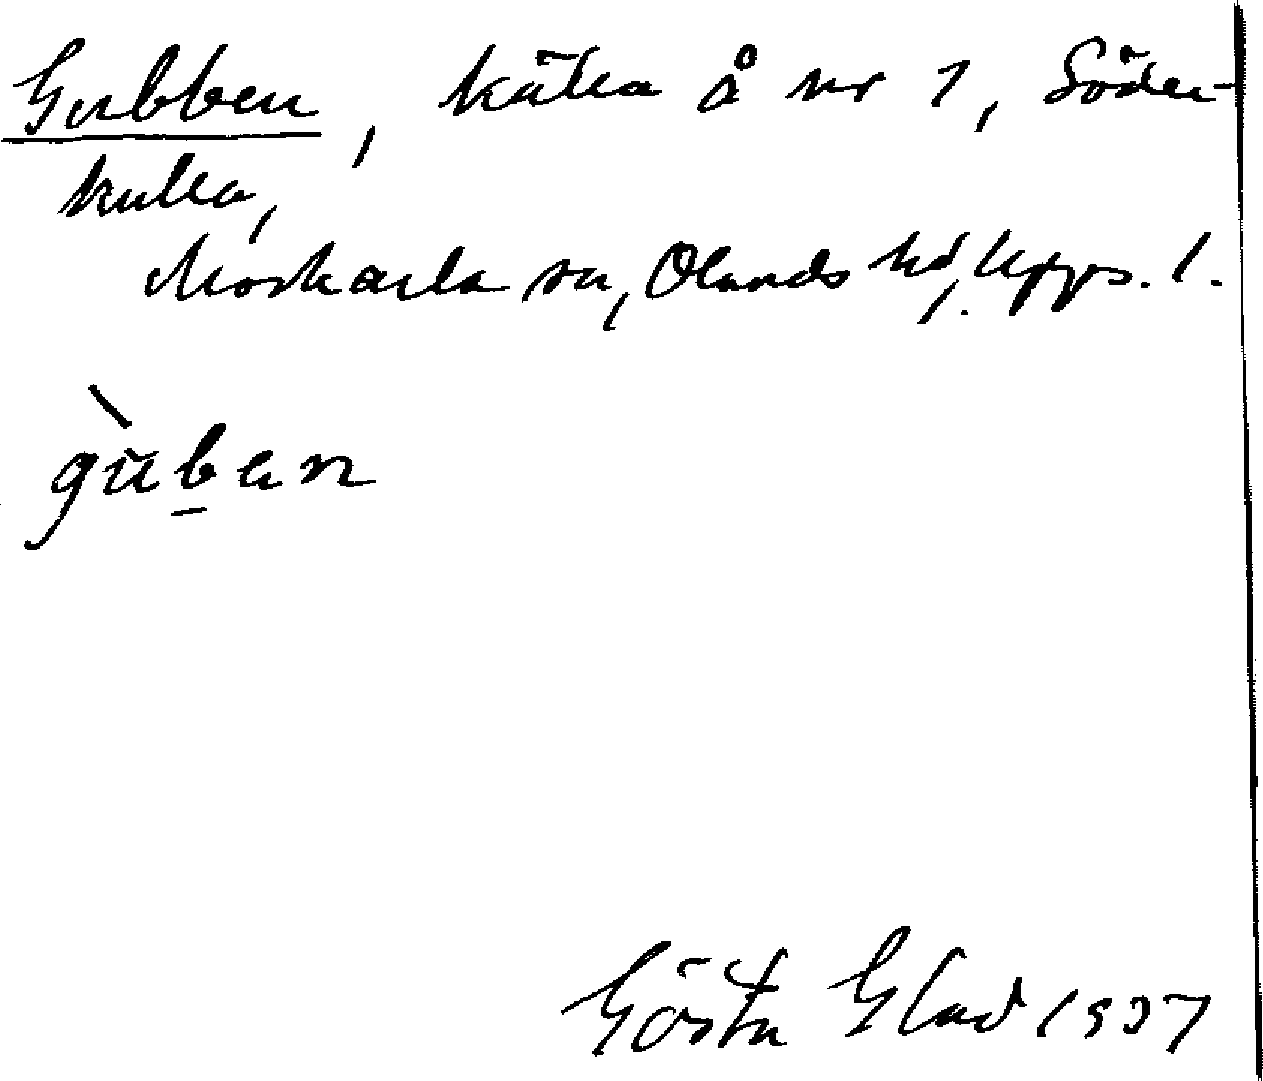 Gubben, källa å nr 1, Söder-
kulla,
Morkarla sn, Olands hd, Upps. l.
gùben
Gösta Glad 1937